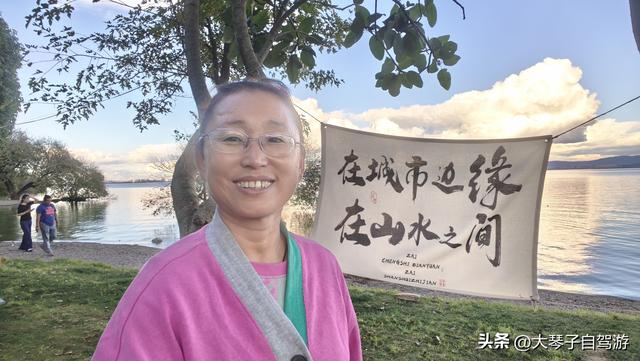 在城市边缘
在山水之间
ZAI
CHENGSHI BIANYUAN
ZAI
SHANSHUIZHIJIAN
头条 @大琴子自驾游